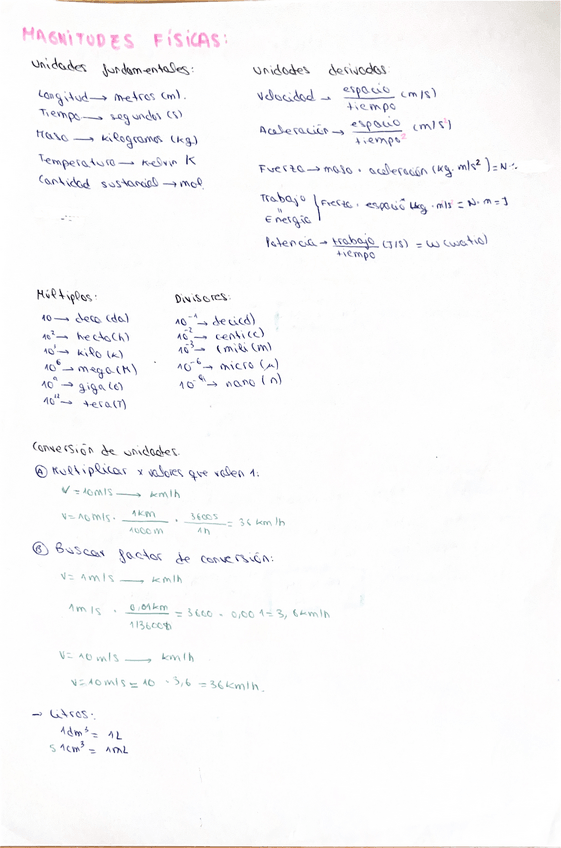 MAGNITUDES FÍSICAS:
Unidades fundamentales:
Longitud → metros (m).
Tiempo → segundos (s)
Masa → kilogramos (kg)
Temperatura → Kelvin K
Cantidad sustancial → mol.
Unidades derivadas
Velocidad → espacio/tiempo (m/s)
Aceleración → espacio/tiempo² (m/s²)
Fuerza → masa · aceleración (kg · m/s²) = N
Trabajo
"
Energía
Fuerza · espacio kg · m/s = N · m = J
Potencia → trabajo/tiempo (J/s) = W (watio)
Múltiplos:
10 → deca (da)
10² → hecto (h)
10³ → kilo (k)
10⁶ → mega (M)
10⁹ → giga (G)
10¹² → tera (T)
Divisores:
10⁻¹ → deci (d)
10⁻² → centi (c)
10⁻³ → (mili (m)
10⁻⁶ → micro (μ)
10⁻⁹ → nano (n)
Conversión de unidades.
Ⓐ Multiplicar x valores que valen 1:
V = 10 m/s → km/h
V = 10 m/s · 1 km/1000 m · 3600 s/1 h = 36 km/h
Ⓑ Buscar factor de conversión:
V = 1 m/s → km/h
1 m/s · 0,01 km/1/3600 h = 3600 · 0,001 = 3,6 km/h
V = 10 m/s → km/h
V = 10 m/s = 10 · 3,6 = 36 km/h.
→ Litros:
1 dm³ = 1 L
S 1 cm³ = 1 mL